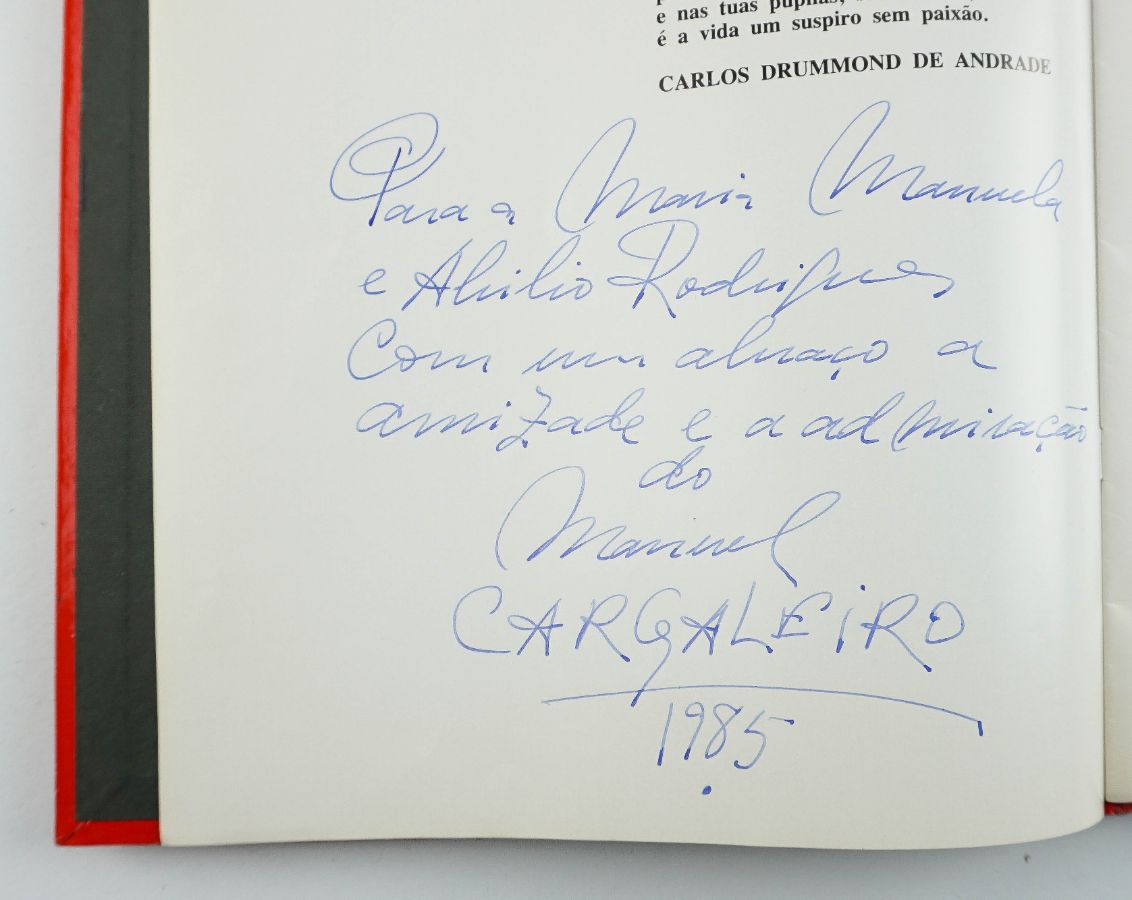 e nas tuas pupilas,
é a vida um suspiro sem paixão.
CARLOS DRUMMOND DE ANDRADE
Para a Maria Manuela
e Abílio Rodrigues
Com um abraço a
amizade e a admiração
do
Manuel
CARGALEiRO
1985